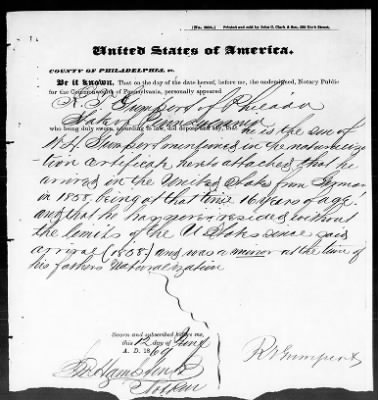 [No. 206.] Printed and sold by John C. Clark & Son, 230 Dock Street.
United States of America.
COUNTY OF PHILADELPHIA, ss.
Be it known, That on the day of the date hereof, before me, the undersigned, Notary Public
for the Commonwealth of Pennsylvania, personally appeared
Gumpert of Philada
State of Pennsylvania
who being duly sworn, according to law, did depose and say, that he is the son of
W. H. Gumpert mentioned in the naturaliza-
tion certificate hereto attached, that he
arrived in the United States from Germany
in 1858, being at that time 16 years of age.
and that he has never resided without
the limits of the U States since said
arrival (1858.) and was a minor at the time of
his fathers Naturalization
Sworn and subscribed before me,
this 12 day of June
A. D. 1869
Gumpert